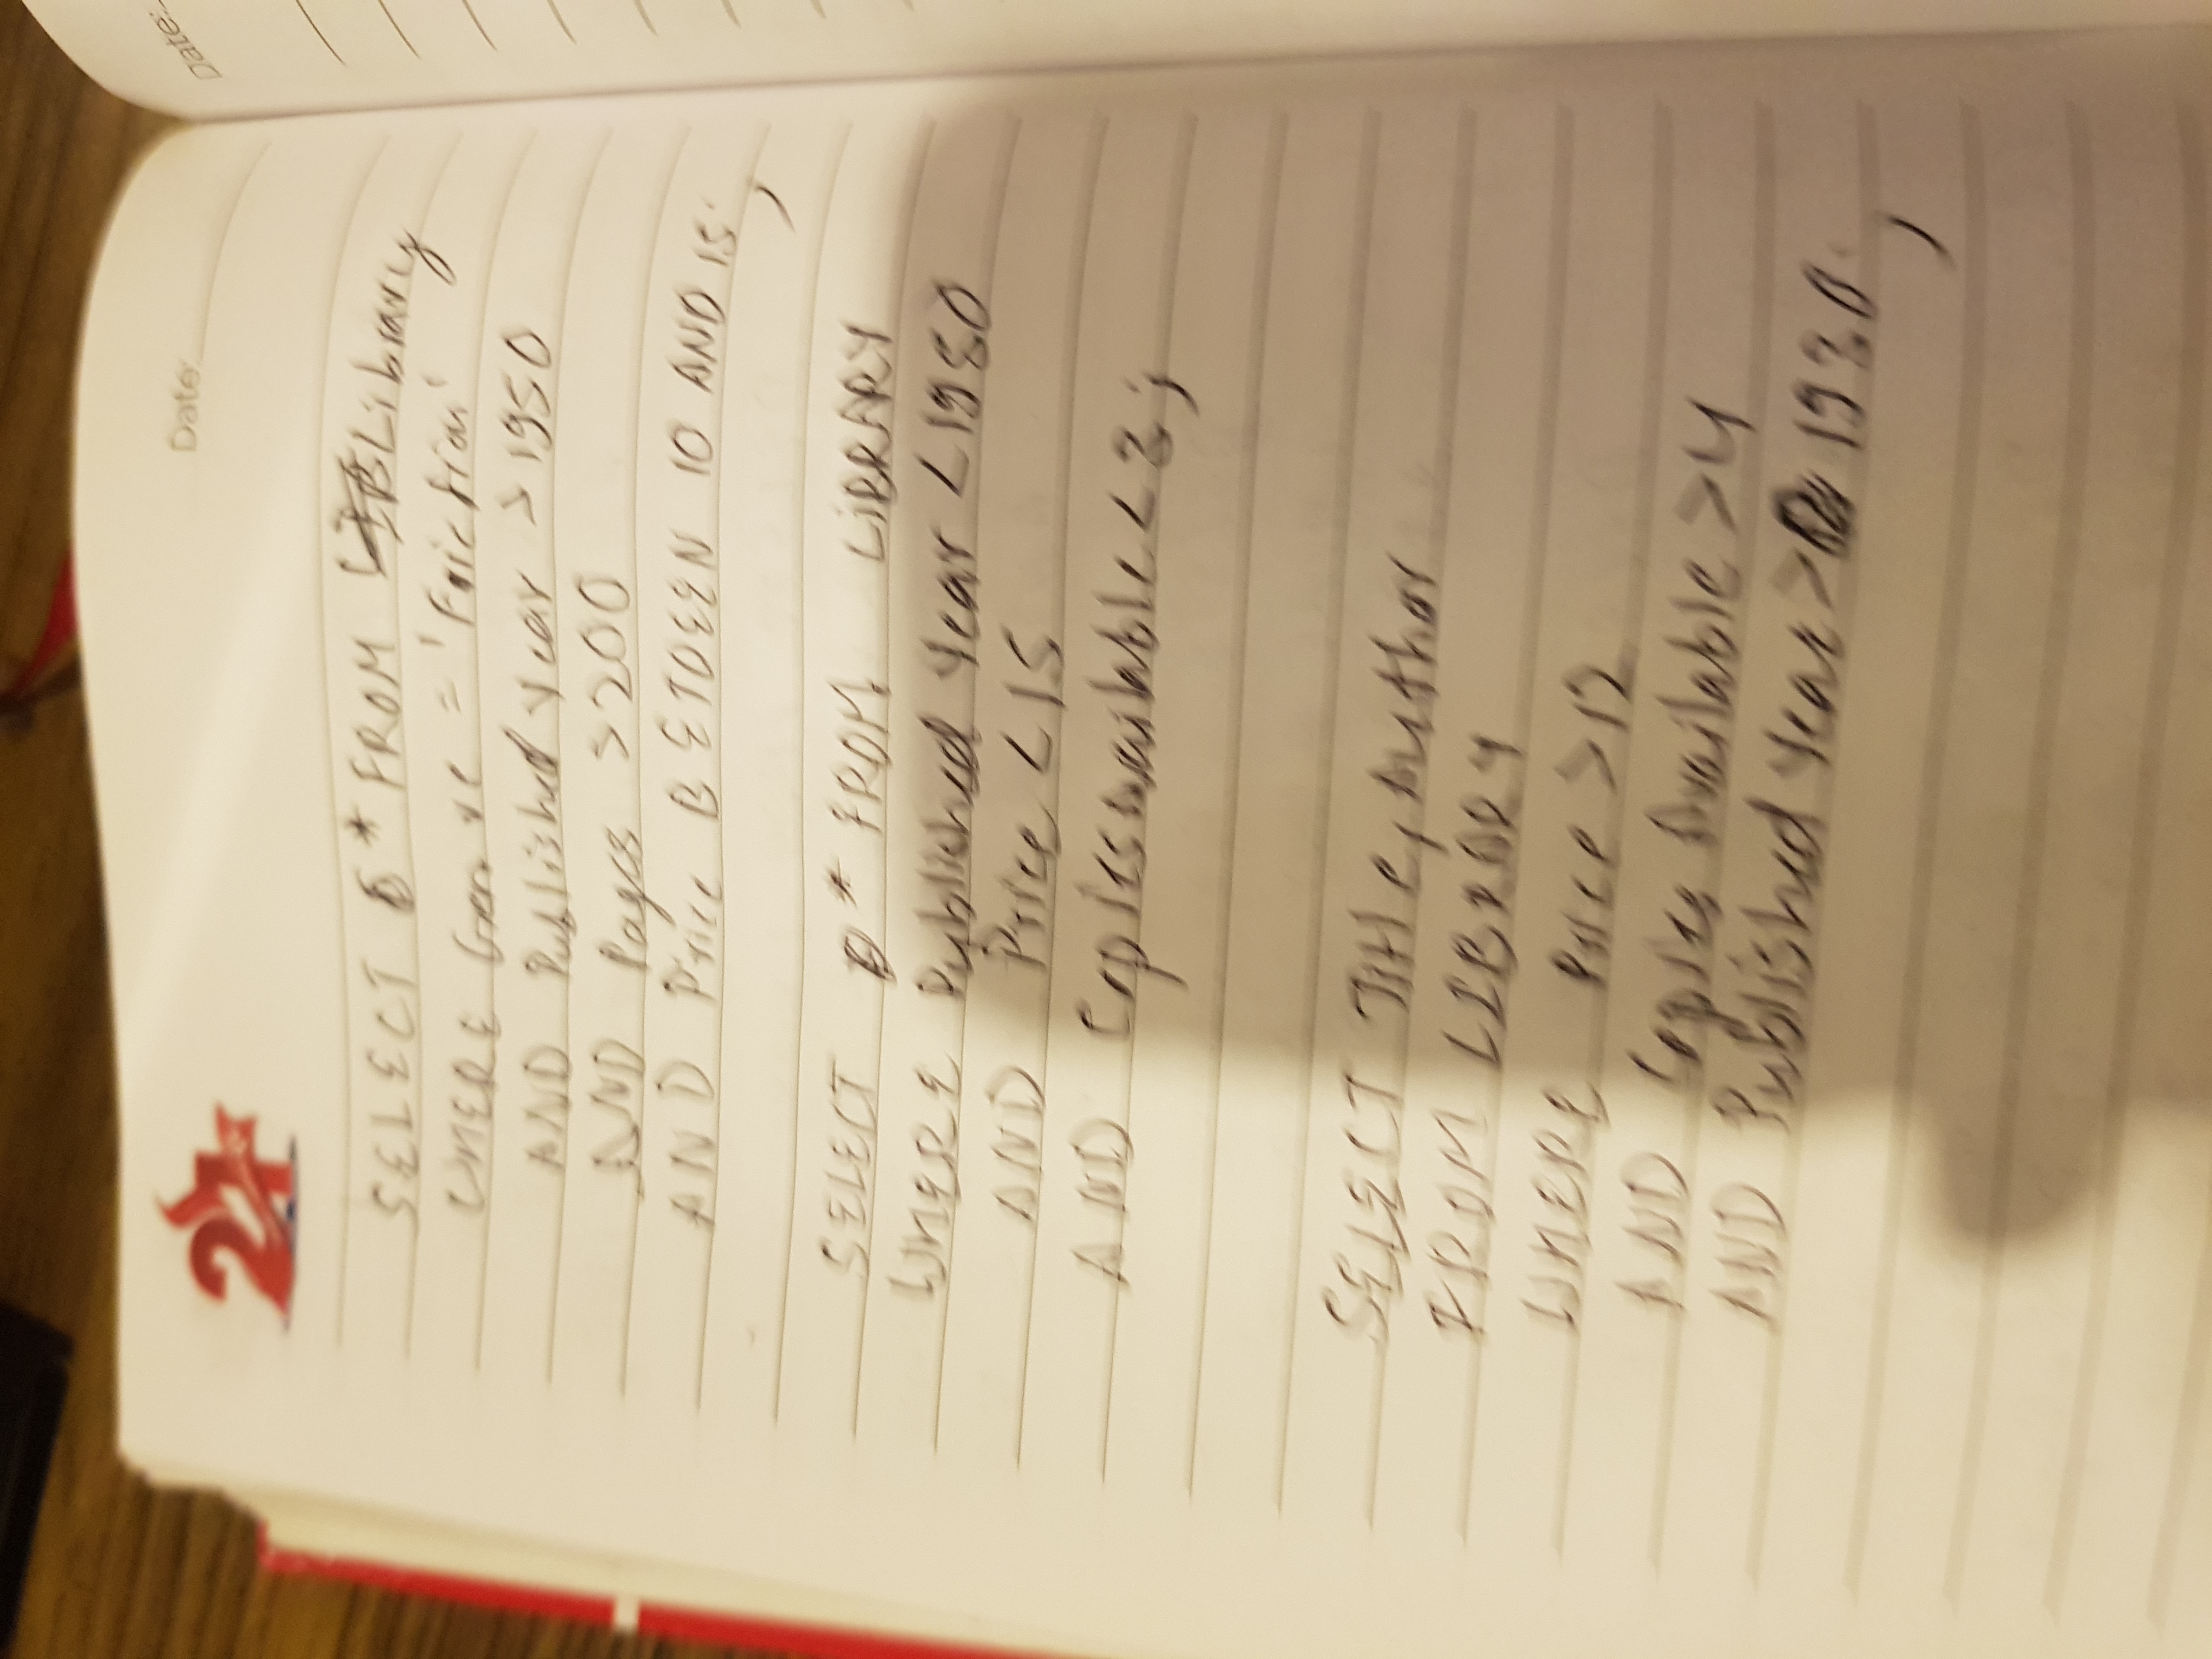 21
Date:
Date:
SELECT * FROM Library
WHERE Genre = 'Friction'
AND Published Year > 1950
AND Pages > 200
AND Price BETWEEN 10 AND 15;
SELECT * FROM LIBRARY
WHERE Published Year < 1980
AND Price < 15
AND Copies available <
SELECT Title, Author
FROM LIBRARY
WHERE Price > 12
AND Copies Available > 4
AND Published Year >